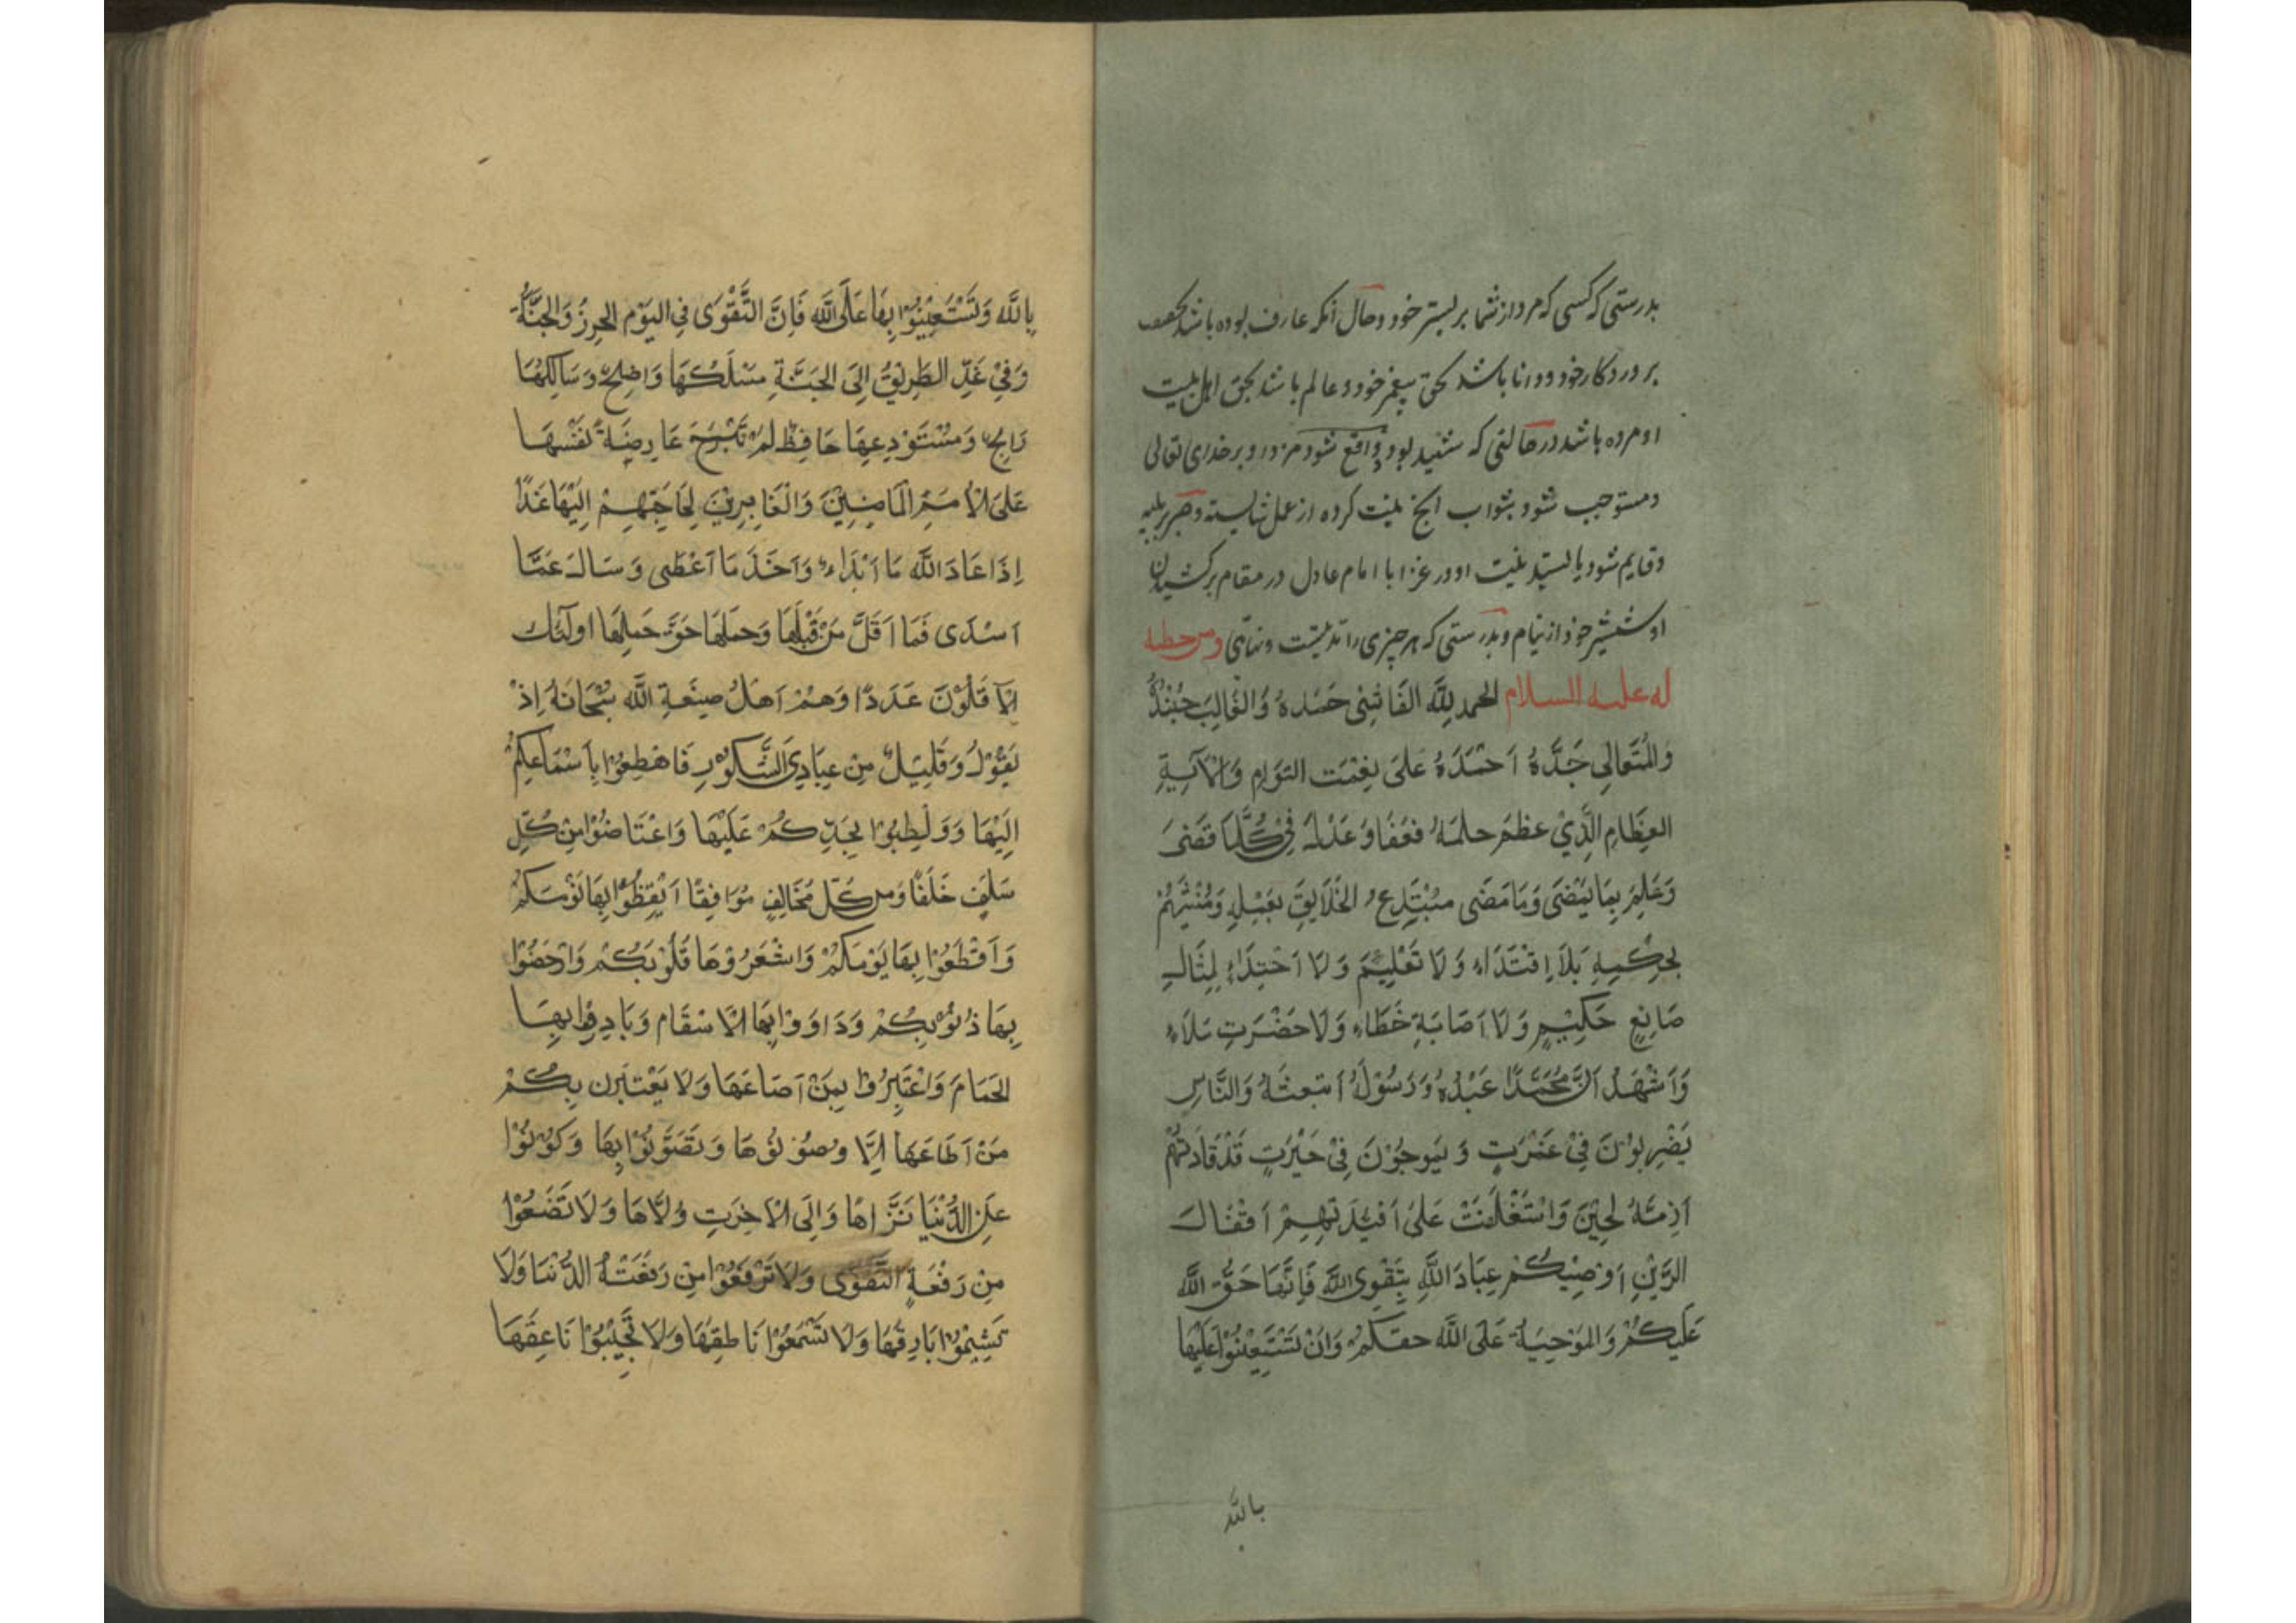 بدرستی که کسی که مرد از شما بر بستر خود و حال آنکه عارف بوده باشد بحق
پروردکار خود و دانا باشد بحق پیغمبر خود و عالم باشد بحق اهل بیت
او مرده باشد در حالتی که شهید بود و واقع شود مزد او بر خدای تعالی
و مستوجب شود بثواب آنچ نیت کرده از عمل شایسته و صبر بر بلیه
و قایم شود یا لستید نیت او در غزا با امام عادل در مقام برکشیدن
او شمشیر خود از نیام و بدرستی که هر چیزی را مدتیست و نهایتی ومن خطبه
له علیه السلام الحمد لله الفَاشِی حَمده وَالغَالِبَ جُنْدُهُ
وَالمُتَعَالِی جَدَّهُ اَحْمَدَهُ عَلیَ نِعْمَت التوَامِ وَالْآلآیَةِ
العِظَامِ الَّذِيْ عظمَ حلمَهُ فَعَفَا وَعَدْلَهُ فِیْ کُلَّمَا قَضَیَ
وَعَلِمَ بِمَا یَمْضَی وَمَا مَضَی مُبْتَدِعُ الخَلَایِقَ بعِلْمِهِ وَمُنْشِئَهُمْ
بحِکمِهِ بَلَا اِقتَدَاءِ وَلَا تَعْلِیْمَ وَلَا اَحْتِذَاءُ لِمِثَالِ
صَانِعٍ حَکِیْمٍ وَلَا اَصَابَةِ خَطَاءِ وَلَا حَضْرَتِ مَلَاءِ
وَاَشْهَدُ اَنَّ مُحَمَّدًا عَبْدُهُ وَرَسُوْلُهُ اَبتعثَهُ وَالنَّاسِ
یَضْرِبوُنَ فِیْ غَمْرَتٍ وَیَموجُوْنَ فِیْ حَیْرَتٍ قَدْ قَادَتهُمْ
اَزِمَّهُ لحِیْنَ وَاسْتَغْلَقَتْ عَلیُ اَفئِدَتهِمْ اَقْفَالَ
الرَّیْنِ اَوْصِیْکُمْ عِبَادَ اللَّهِ بِتَقْوِی اللَّهِ فَاِنَّهَا حَقُّ اللَّه
عَلَیکُمْ وَالموْجِبَةُ عَلَی اللَّه حقکُمْ وَاَنْ تَسْتَعِیْنُوْا عَلَیْهَا
بالله
بِاللَّه وَتَسْتَعِیْنُوْا بِهَا عَلَی اللَّه فَاِنَّ التَّقْوَی فِی الیَوْمِ الحِرِزُ وَالجُنَّةُ
وَفِیْ غَدٍ الطَرِیْقُ اِلیَ الجَنَّةِ مسْلَکُهَا وَاضِحٌ وَسَالِکُهَا
رَابِحٌ وَمسْتَوْدِعِهَا حَافِظٌ لَمْ تَبْرَحَ عَارِضَةً نَفْسَهَا
عَلیَ الْاُمَمِ المَاضِیْنَ وَالْغَابِرِیْنَ لِحَاجَتِهِمْ اِلَیْهَا غَدًا
اِذَا عَادَ اللَّه مَا اَبْدَاءَ وَاَخَذَ مَا اَعْطَی وَسَالَ عَمَّا
اَسْدَی فَمَا اَقَلَّ مَنْ قَبْلَهَا وَحمَلَهَا حَقَّ حَمِلهَا اولَٓئك
الْاَقَلُوْنَ عَدَدًا وَهُمْ اَهَلُ صِفَةِ اللَّه سُبْحَانَهُ اِذْ
یَقُوْلُ وَقَلِیْلٌ مِنْ عِبَادِيَ الشَّکوُر فَاهْطِعُوْا بِاَسْمَاعِکمُ
اِلَیْهَا وَوَلظِبُوْا بجَدِّکُمْ عَلَیْهَا وَاعْتَاضُوْا مِنْ کُلِّ
سَلَفٍ خَلَفًا وَمن کُلّ مُخَالِفٍ مُوَافِقًا اَیْقِظُوْا بِهَا نَوْمَکمْ
وَاَقْطَعُوْا بِهَا یَوْمَکُمْ وَاشْعَرُوْهَا قَلُوْبَکُمْ وَارْحَضُوْا
بِهَا ذُنُوْبکُمْ وَدَاوَوْا بِهَا الْاَسْقَام وَبَادِرُوْا بِهَا
الحَمَامَ وَاعْتَبِرُوْا بِمَنْ اَضَاعَهَا وَلَا یَعْتَبَرن بِکُمْ
مَنْ اَطَاعَهَا اِلَّا وصُوْنُوْهَا وَتَصَوَّنُوْا بِهَا وَکُوْنُوْا
عَنِ الدُّنْیَا نَزَّاهَا وَاِلَی الْاَخِرَتِ وُلَّاهَا وَلَا تَضَعُوْا
مِنْ رَفْعَةِ التَّقْوَی وَلَا تَرْفَعُوْا مِنْ رَفَعَتْهُ الدُّنْیَا وَلَا
تَشِیْمُوْا بَارِقَهَا وَلَا تَسْمَعُوْا نَاطقِهَا وَلَا تُجِیْبُوْا نَاعِقَهَا